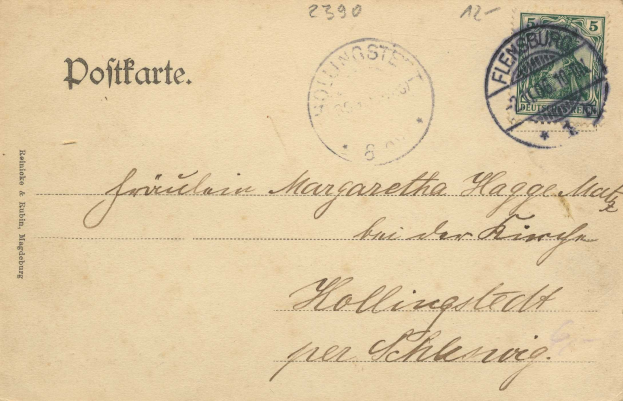 2390 12-
5 5
FLENSBURG
DEUTSCHES REICH
* 1
HOLLINGSTEDT
* 8
Postkarte.
Reinicke & Rubin, Magdeburg
Fräulein Margaretha Hagge
bei der Kirche
Hollingstedt
per Schleswig.